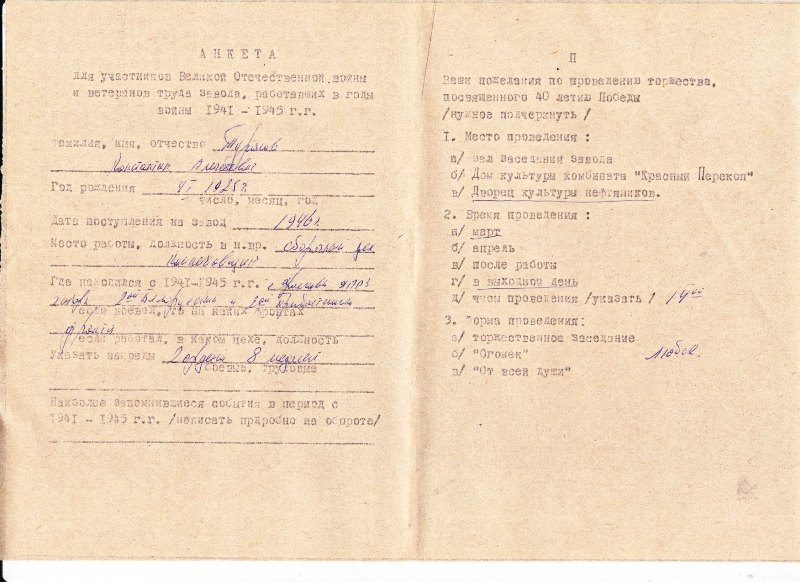 АНКЕТА
для участников Великой Отечественной войны
и ветеранов труда завода, работавших в годы
войны 1941 - 1945 г.г.
Фамилия, имя, отчество
Год рождения 1925 г.
число, месяц, год
Дата поступления на завод 1946 г.
Место работы, должность в н.вр. сборочн цех
Где находился с 1941-1945 г.г.
/если воевал, то на каких фронтах
фронта
/если работал, в каком цехе, должность
Указать награды 2 ордена 8 медалей
боевые, трудовые
Наиболее запомнившиеся события в период с
1941 - 1945 г.г. /написать подробно на обороте/
П
Ваши пожелания по проведению торжества,
посвященного 40 летию Победы
/нужное подчеркнуть /
1. Место проведения :
а/ зал заседании завода
б/ Дом культуры комбината "Красный Перекоп"
в/ Дворец культуры нефтяников.
2. Время проведения :
а/ март
б/ апрель
в/ после работы
г/ в выходной день
д/ часы проведения /указать / 14 00
3. Форма проведения:
а/ торжественное заседание
б/ "Огонек" любое.
в/ "От всей души"